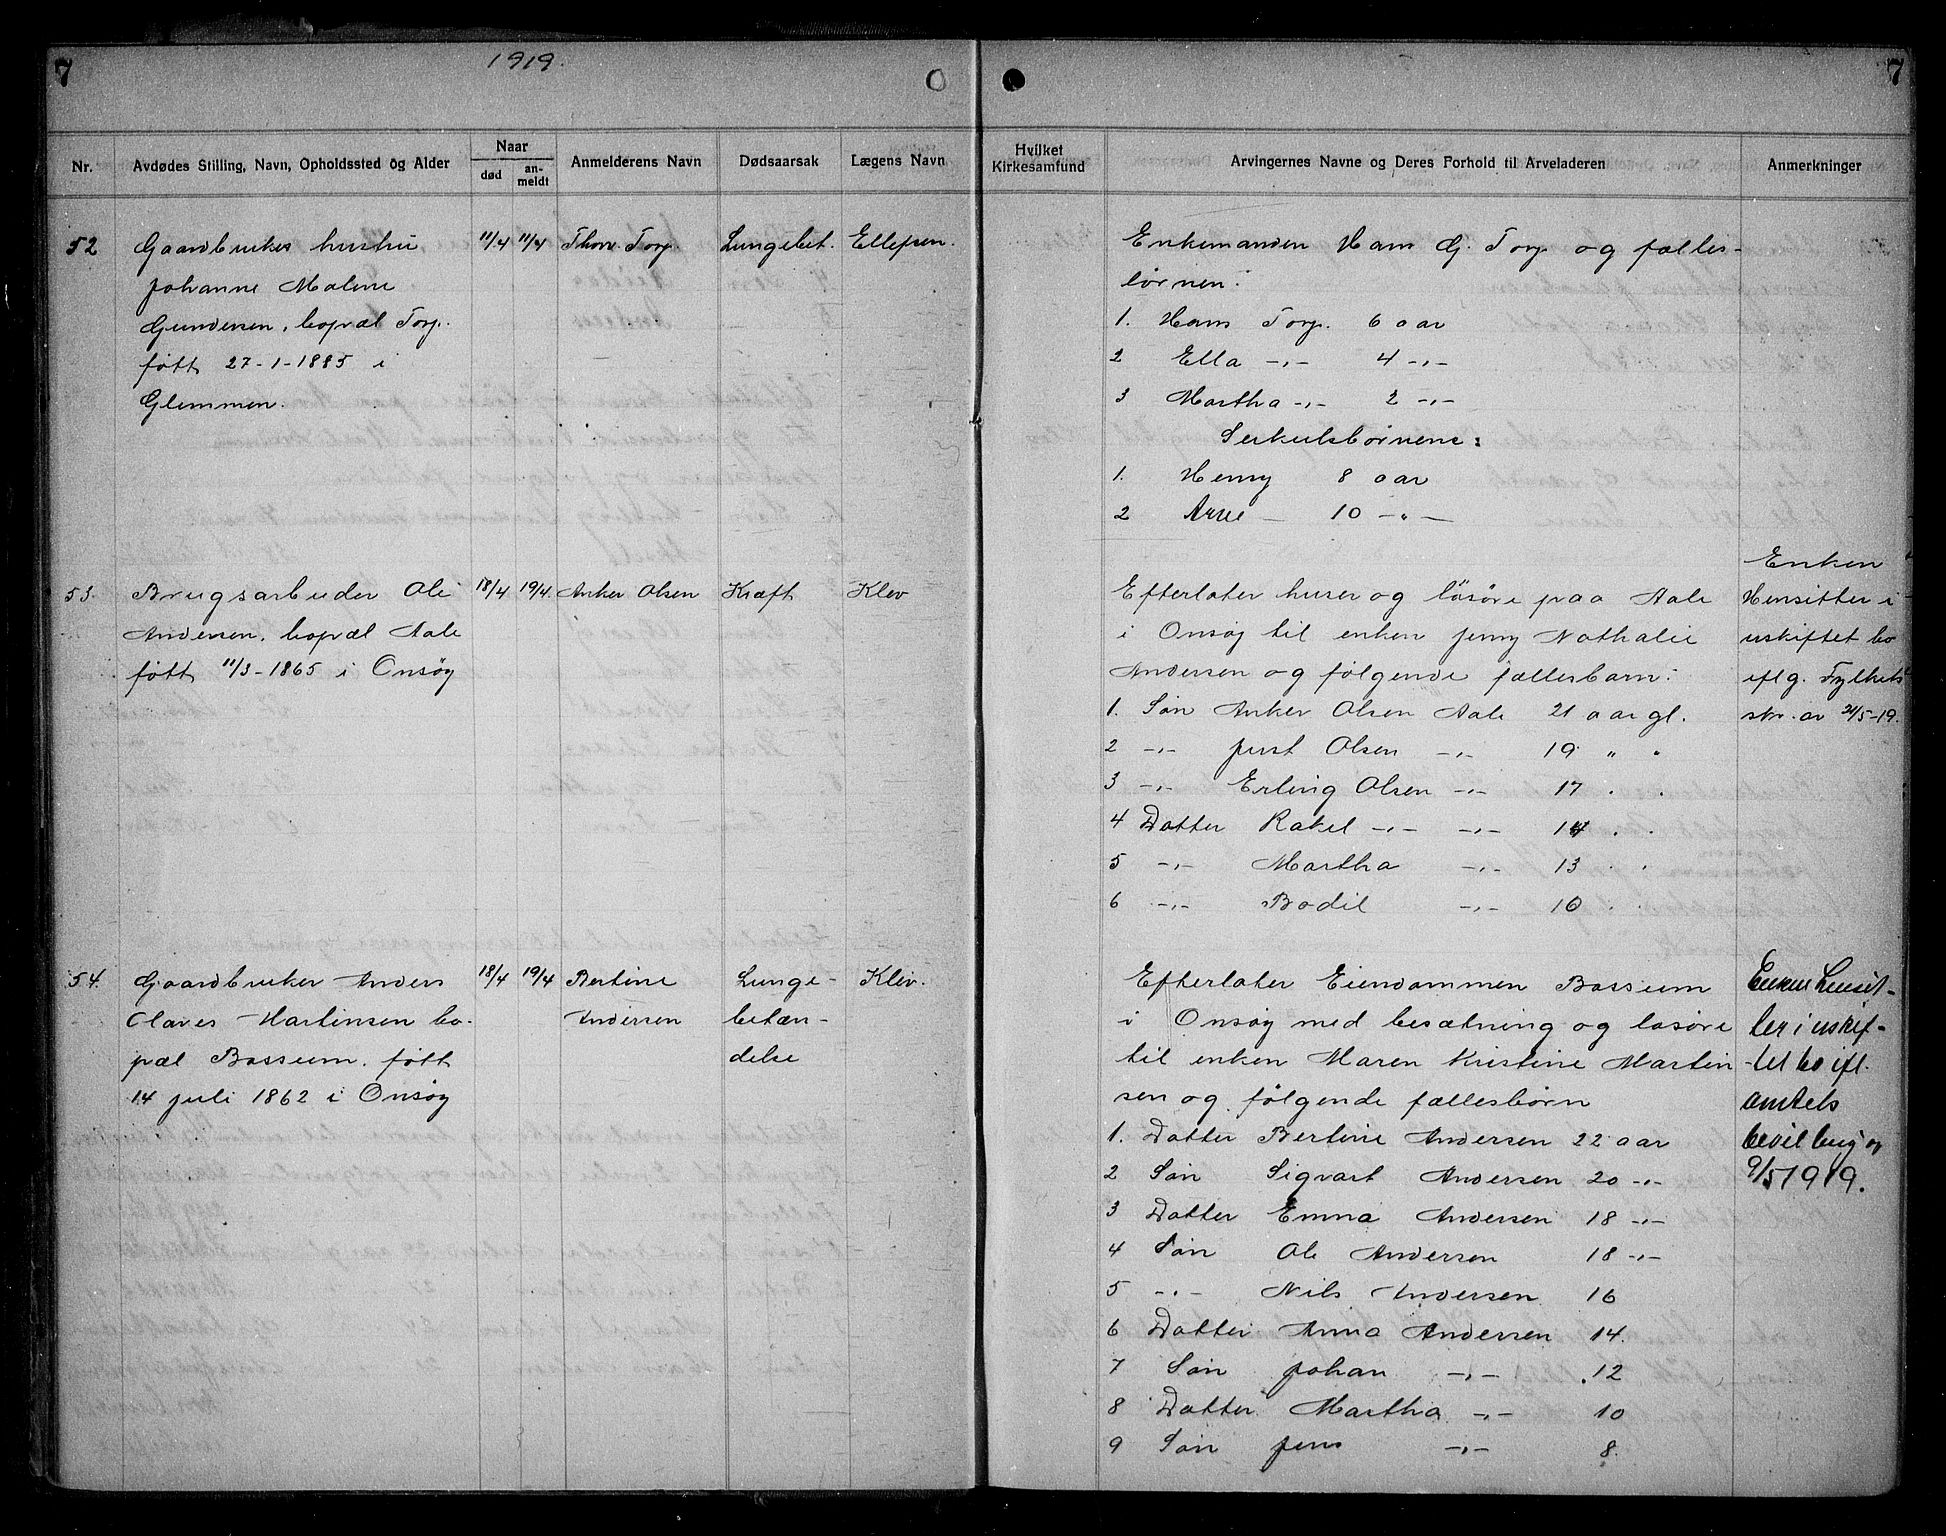 7
1919.
7
Nr.
Avdødes Stilling, Navn, Opholdssted og Alder
Naar
død
an-
meldt
Anmelderens Navn
Dødsaarsak
Lægens Navn
Hvilket
Kirkesamfund
Arvingernes Navne og Deres Forhold til Arveladeren
Anmerkninger
52 Gaardbrukes hustru 11/4 11/4 Thorv. Torp. Lungebet. Ellefsen.
Johanne Malene
Gundersen, bopæl Torp.
født 27-1-1885 i
Glemmen.
Enkemanden Hans G. Torp og fælles-
börnen:
1. Hans Torp. 6 aar
2 Ella -"- 4 -"-
3 Martha -"- 2 -"-
Serkulsbörnene:
1. Henry 8 aar
2 Arne — 10 -"-
53. Brugsarbeider Ole 18/4 19/4. Anker Olsen Kræft Klev
Andersen, bopæl Aale
født 11/3-1865 i Onsøy
Efterlater huser og løsøre paa Aale
i Onsøy til enken Jenny Nathalie
Andersen og følgende fællesbarn:
1. Søn Anker Olsen Aale 21 aar gl.
2 -"- Just Olsen -"- 19 " "
3 -"- Erling Olsen -"- 17 " "
4 Datter Rakel -"- -"- 14 " "
5 -"- Martha -"- 13 " "
6 -"- Bodil -"- 10 " "
Enken
Hensitter i
uskiftet bo
iflg. Fylkets
skr. av 21/5-19.
54. Gaardbruker Anders 18/4 19/4 Bertine Lunge- Klev.
Olaves Martinsen bo- Andersen betæn-
pæl Bossum. født delse
14 juli 1862 i Onsøy
Efterlater Eiendommen Bossum
i Onsøy med besætning og løsøre
til enken Maren Kristine Martin
sen og følgende fællesbörn
1. Datter Bertine Andersen 22 aar
2 Søn Sigvart Andersen 20 -"-
3 Datter Emma Andersen 18 -"-
4 Søn Ole Andersen 18 -"-
5 -"- Nils Andersen 16
6 Datter Anna Andersen 14.
7 Søn Johan -"- 12
8 Datter Martha -"- 10
9 Søn Jens -"- 8.
Enken hensit-
ter i uskif-
tet bo ifl.
amtets
bevilling av
9/5 1919.